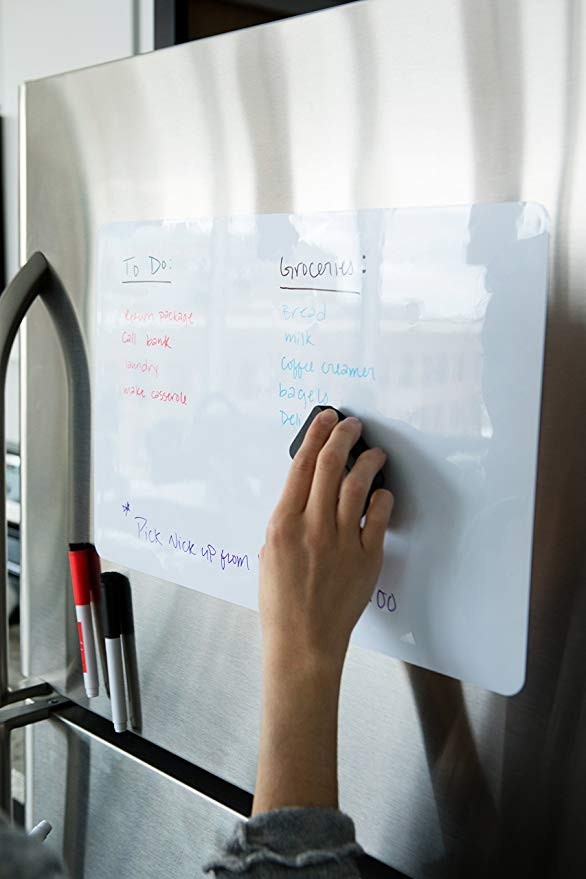 To Do:
Return package
Call bank
laundry
make casserole
Groceries:
Bread
milk
Coffee creamer
bagels
Deli
* Pick Nick up from
00